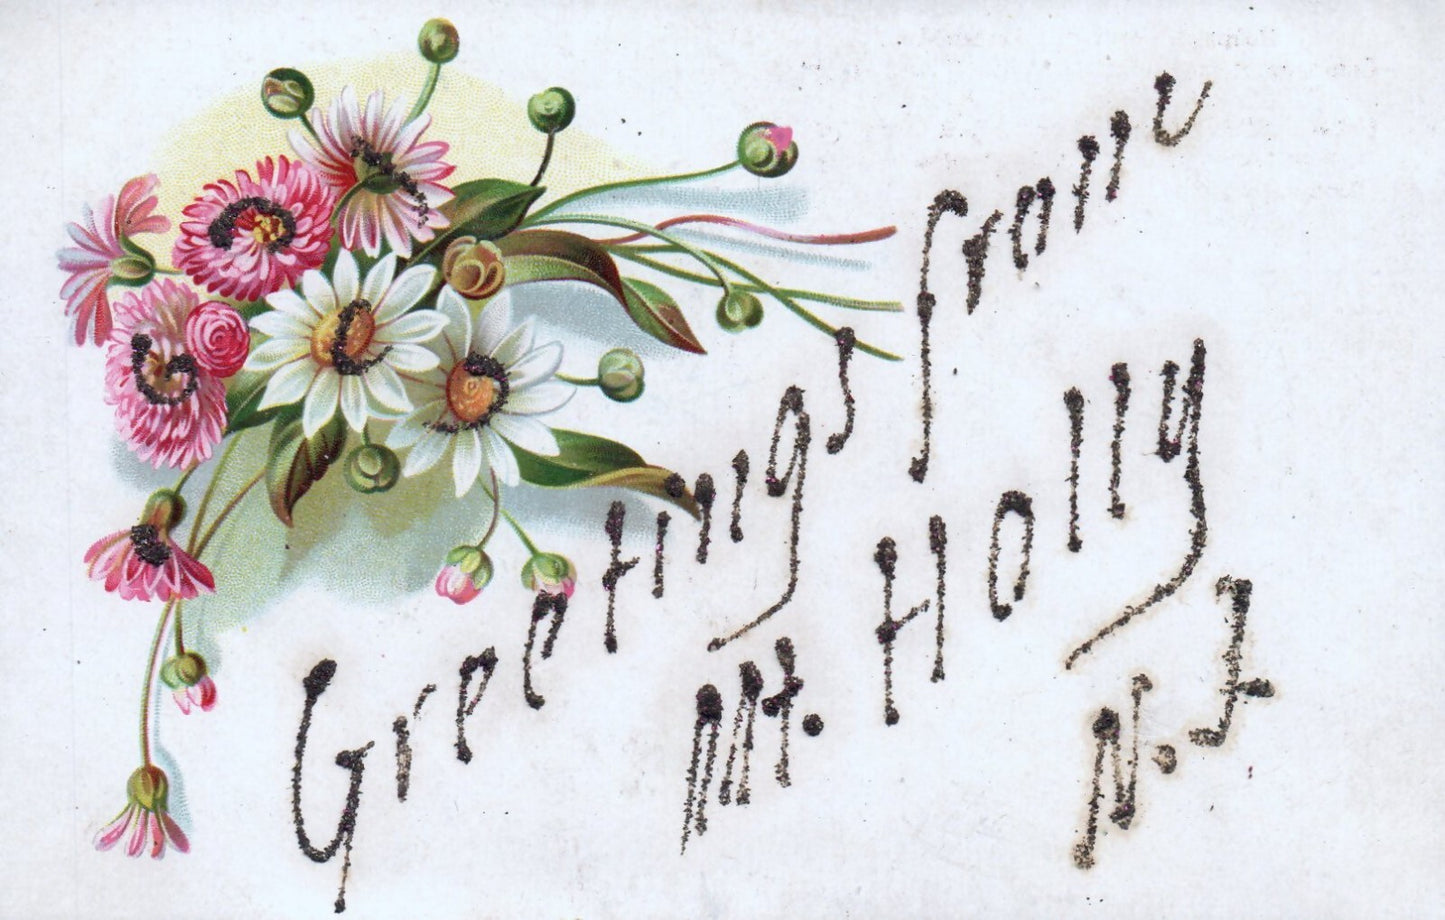 Greetings from
Mt. Holly
N.J